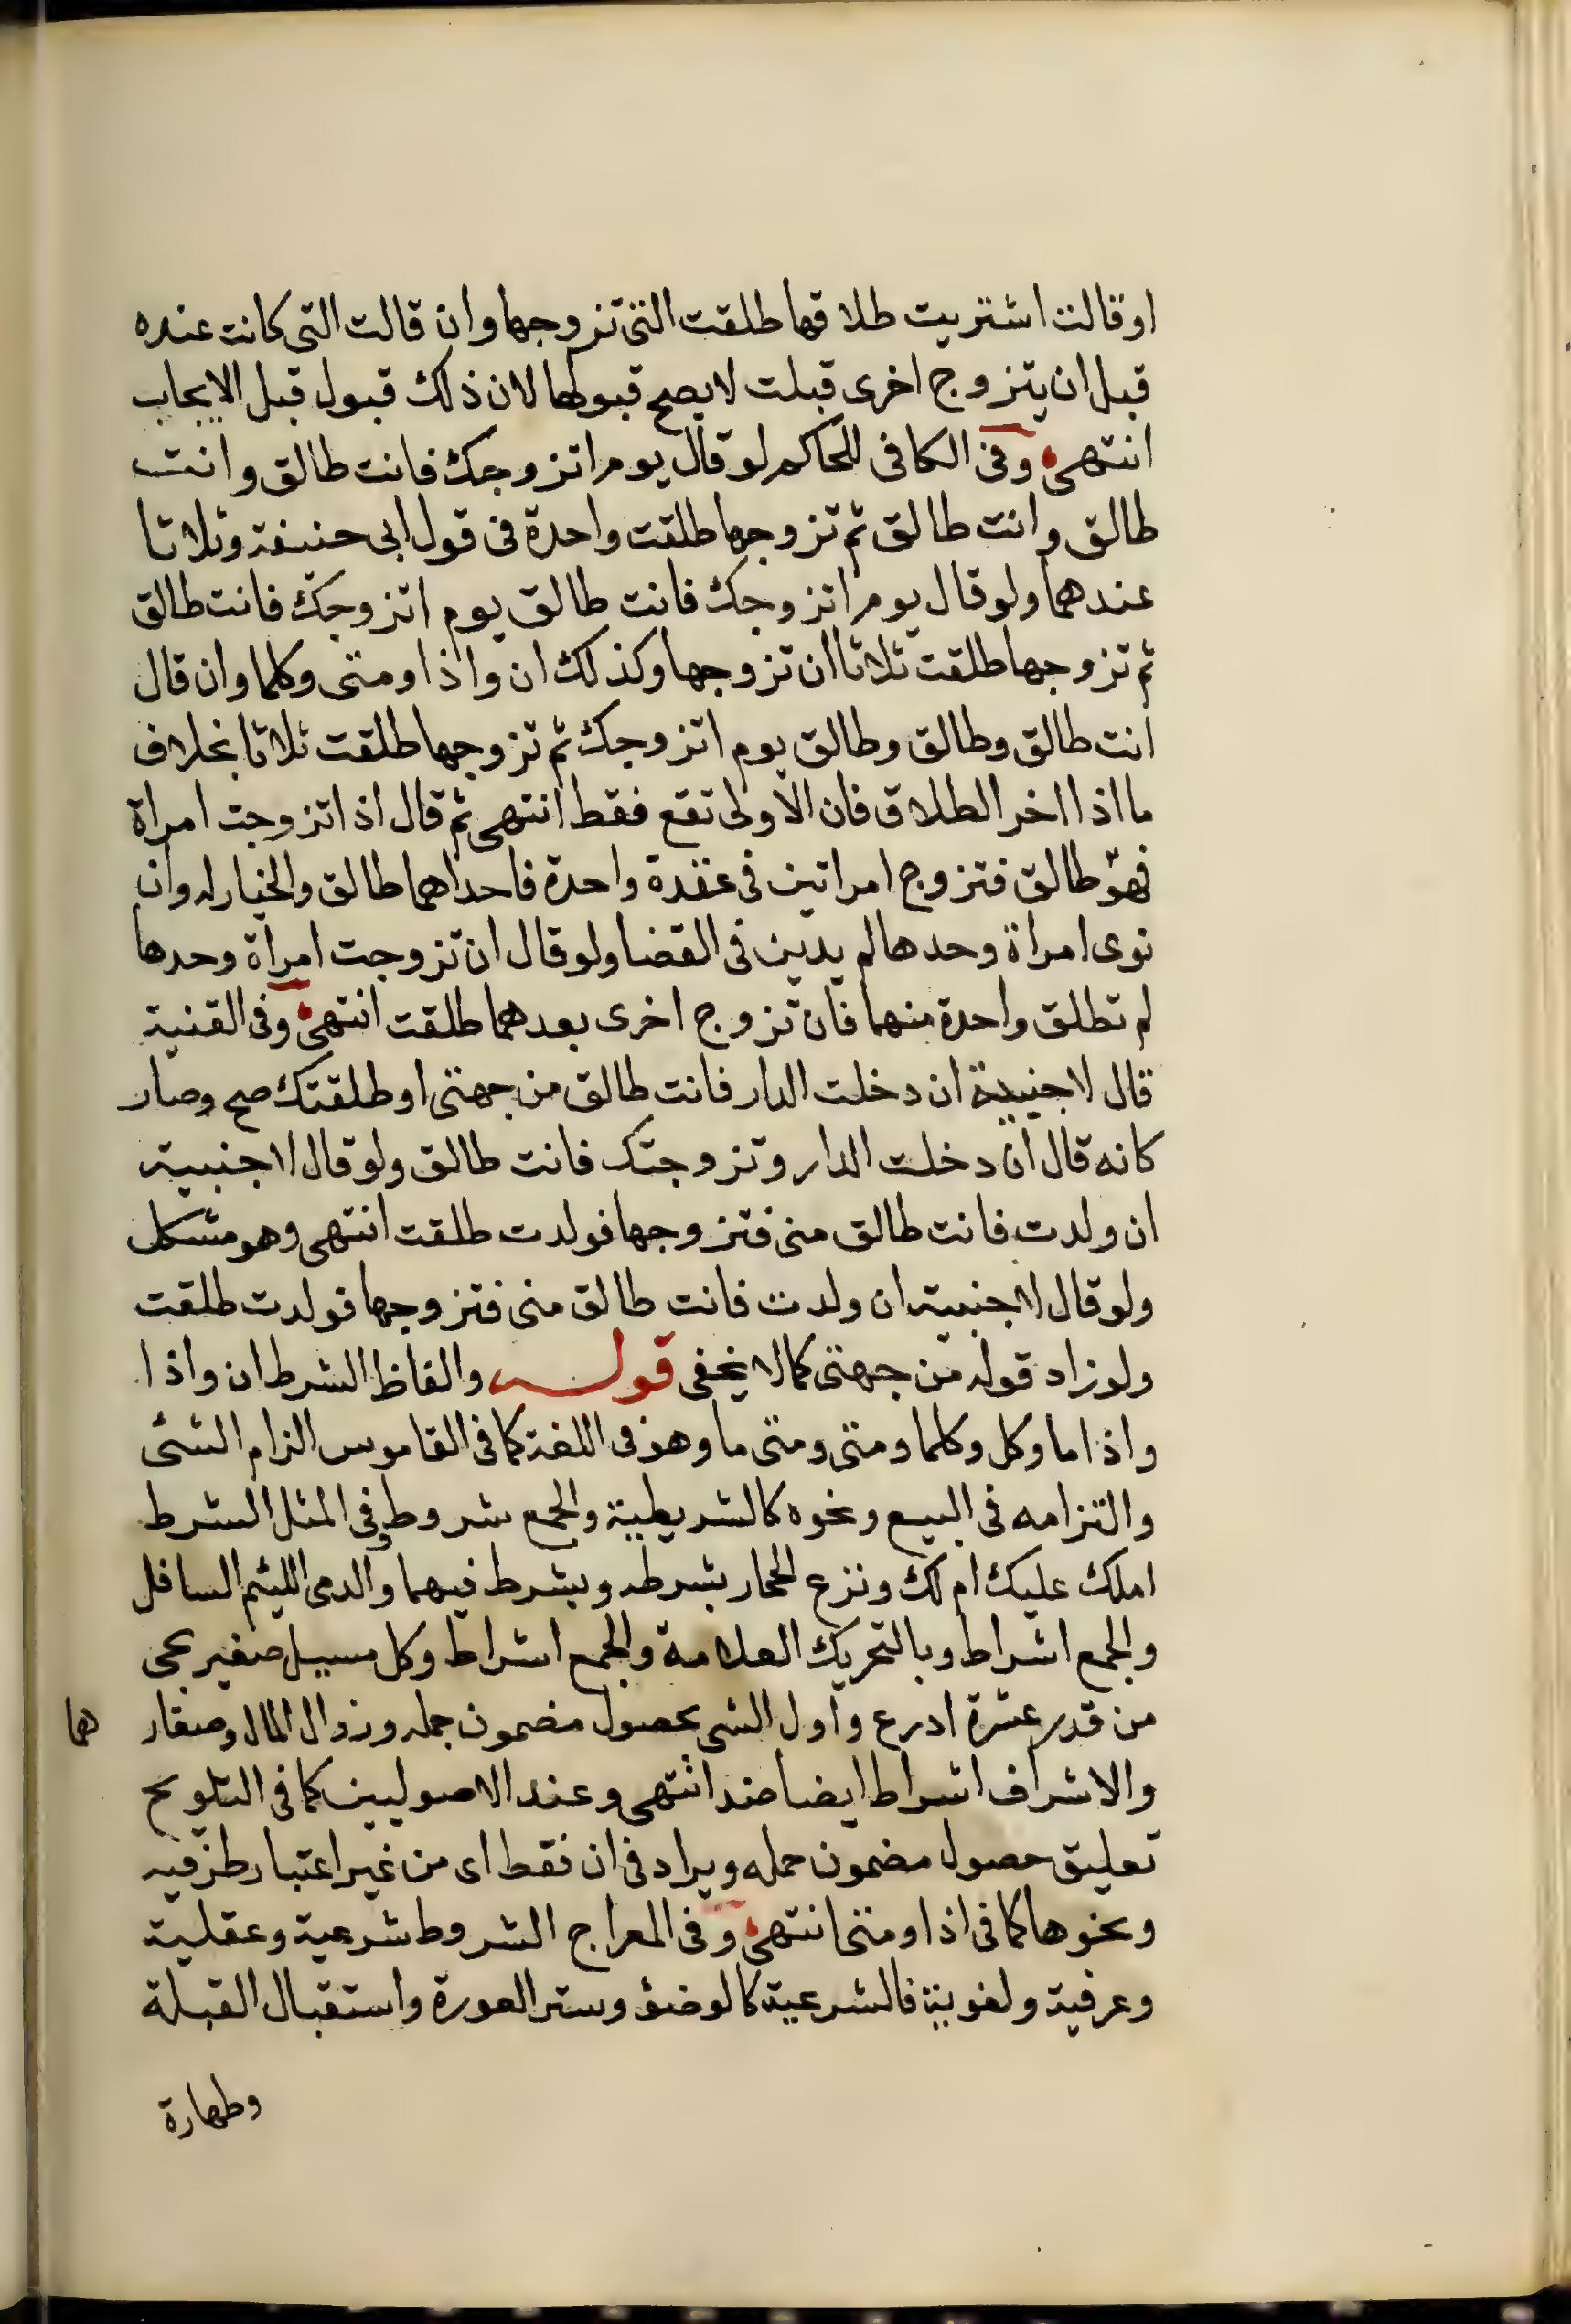 او قالت اشتريت طلاقها طلقت التى تزوجها وان قالت التى كانت عنده
قبل ان يتزوج اخرى قبلت لا يصح قبولها لان ذلك قبول قبل الايجاب
انتهى وفى الكافى للحاكم لو قال يوم اتزوجك فانت طالق وانت
طالق وانت طالق ثم تزوجها طلقت واحدة فى قول ابى حنيفة وثلاثا
عندهما ولو قال يوم اتزوجك فانت طالق يوم اتزوجك فانت طالق
ثم تزوجها طلقت ثلاثا ان تزوجها وكذلك ان واذا ومتى وكلما وان قال
انت طالق وطالق وطالق يوم اتزوجك ثم تزوجها طلقت ثلاثا بخلاف
ما اذا اخر الطلاق فان الاولى تقع فقط انتهى ثم قال اذا تزوجت امراة
فهو طالق فتزوج امراتين فى عقدة واحدة فاحداهما طالق والخيار له وان
نوى امراة وحدها لم يدين فى القضا ولو قال ان تزوجت امراة وحدها
لم تطلق واحدة منهما فان تزوج اخرى بعدهما طلقت انتهى وفى القنية
قال لاجنبية ان دخلت الدار فانت طالق من جهتى او طلقتك صح وصار
كانه قال ان دخلت الدار وتزوجتك فانت طالق ولو قال لاجنبية
ان ولدت فانت طالق منى فتزوجها فولدت طلقت انتهى وهو مشكل
ولو قال لاجنبية ان ولدت فانت طالق منى فتزوجها فولدت طلقت
ولو زاد قوله من جهتى كما لا يخفى قوله والفاظ الشرط ان واذا
واذا ما وكل وكلما ومتى ومتى ما وهو فى اللغة كما فى القاموس الزام الشئ
والتزامه فى البيع ونحوه كالشريطية والجمع شروط وفى المثل الشرط
املك عليك ام لك ونزع الحجار بشرطه وبشرط فيهما والدمى اللئيم السافل
والجمع اشراط وبالتحريك العلامة والجمع اشراط وكل مسيل صغير يجى
من قدر عشرة ادرع واول الشى بحصول مضمون جمله وزوال المال وصغار ها
والاشراف اشراط ايضا ضد انتهى وعند الاصوليين كما فى التلويح
تعليق حصول مضمون حمله ويراد فى ان فقط اى من غير اعتبار طرفيه
ونحوها كما فى اذا ومتى انتهى وفى المعراج الشروط شرعية وعقلية
وعرفية ولغوية فالشرعية كالوضؤ وستر العورة واستقبال القبلة
وطهارة